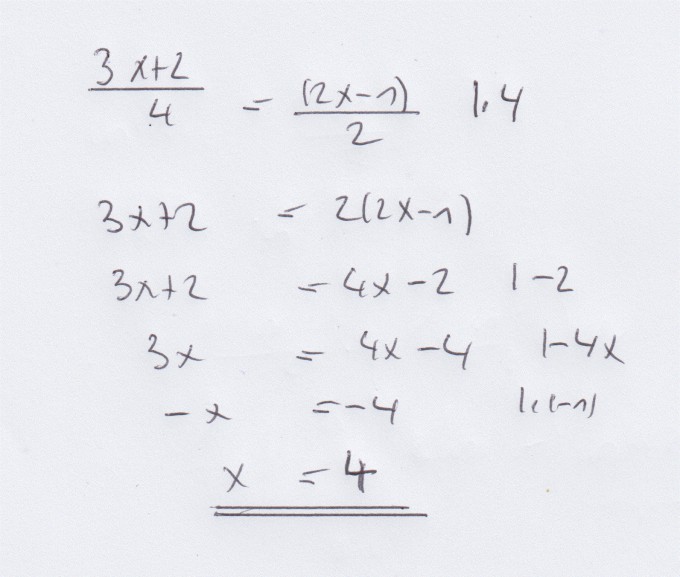 (3x+2)/4 = (2x-1)/2 |·4
3x+2 = 2(2x-1)
3x+2 = 4x-2 |-2
3x = 4x-4 |-4x
-x = -4 |·(-1)
x = 4